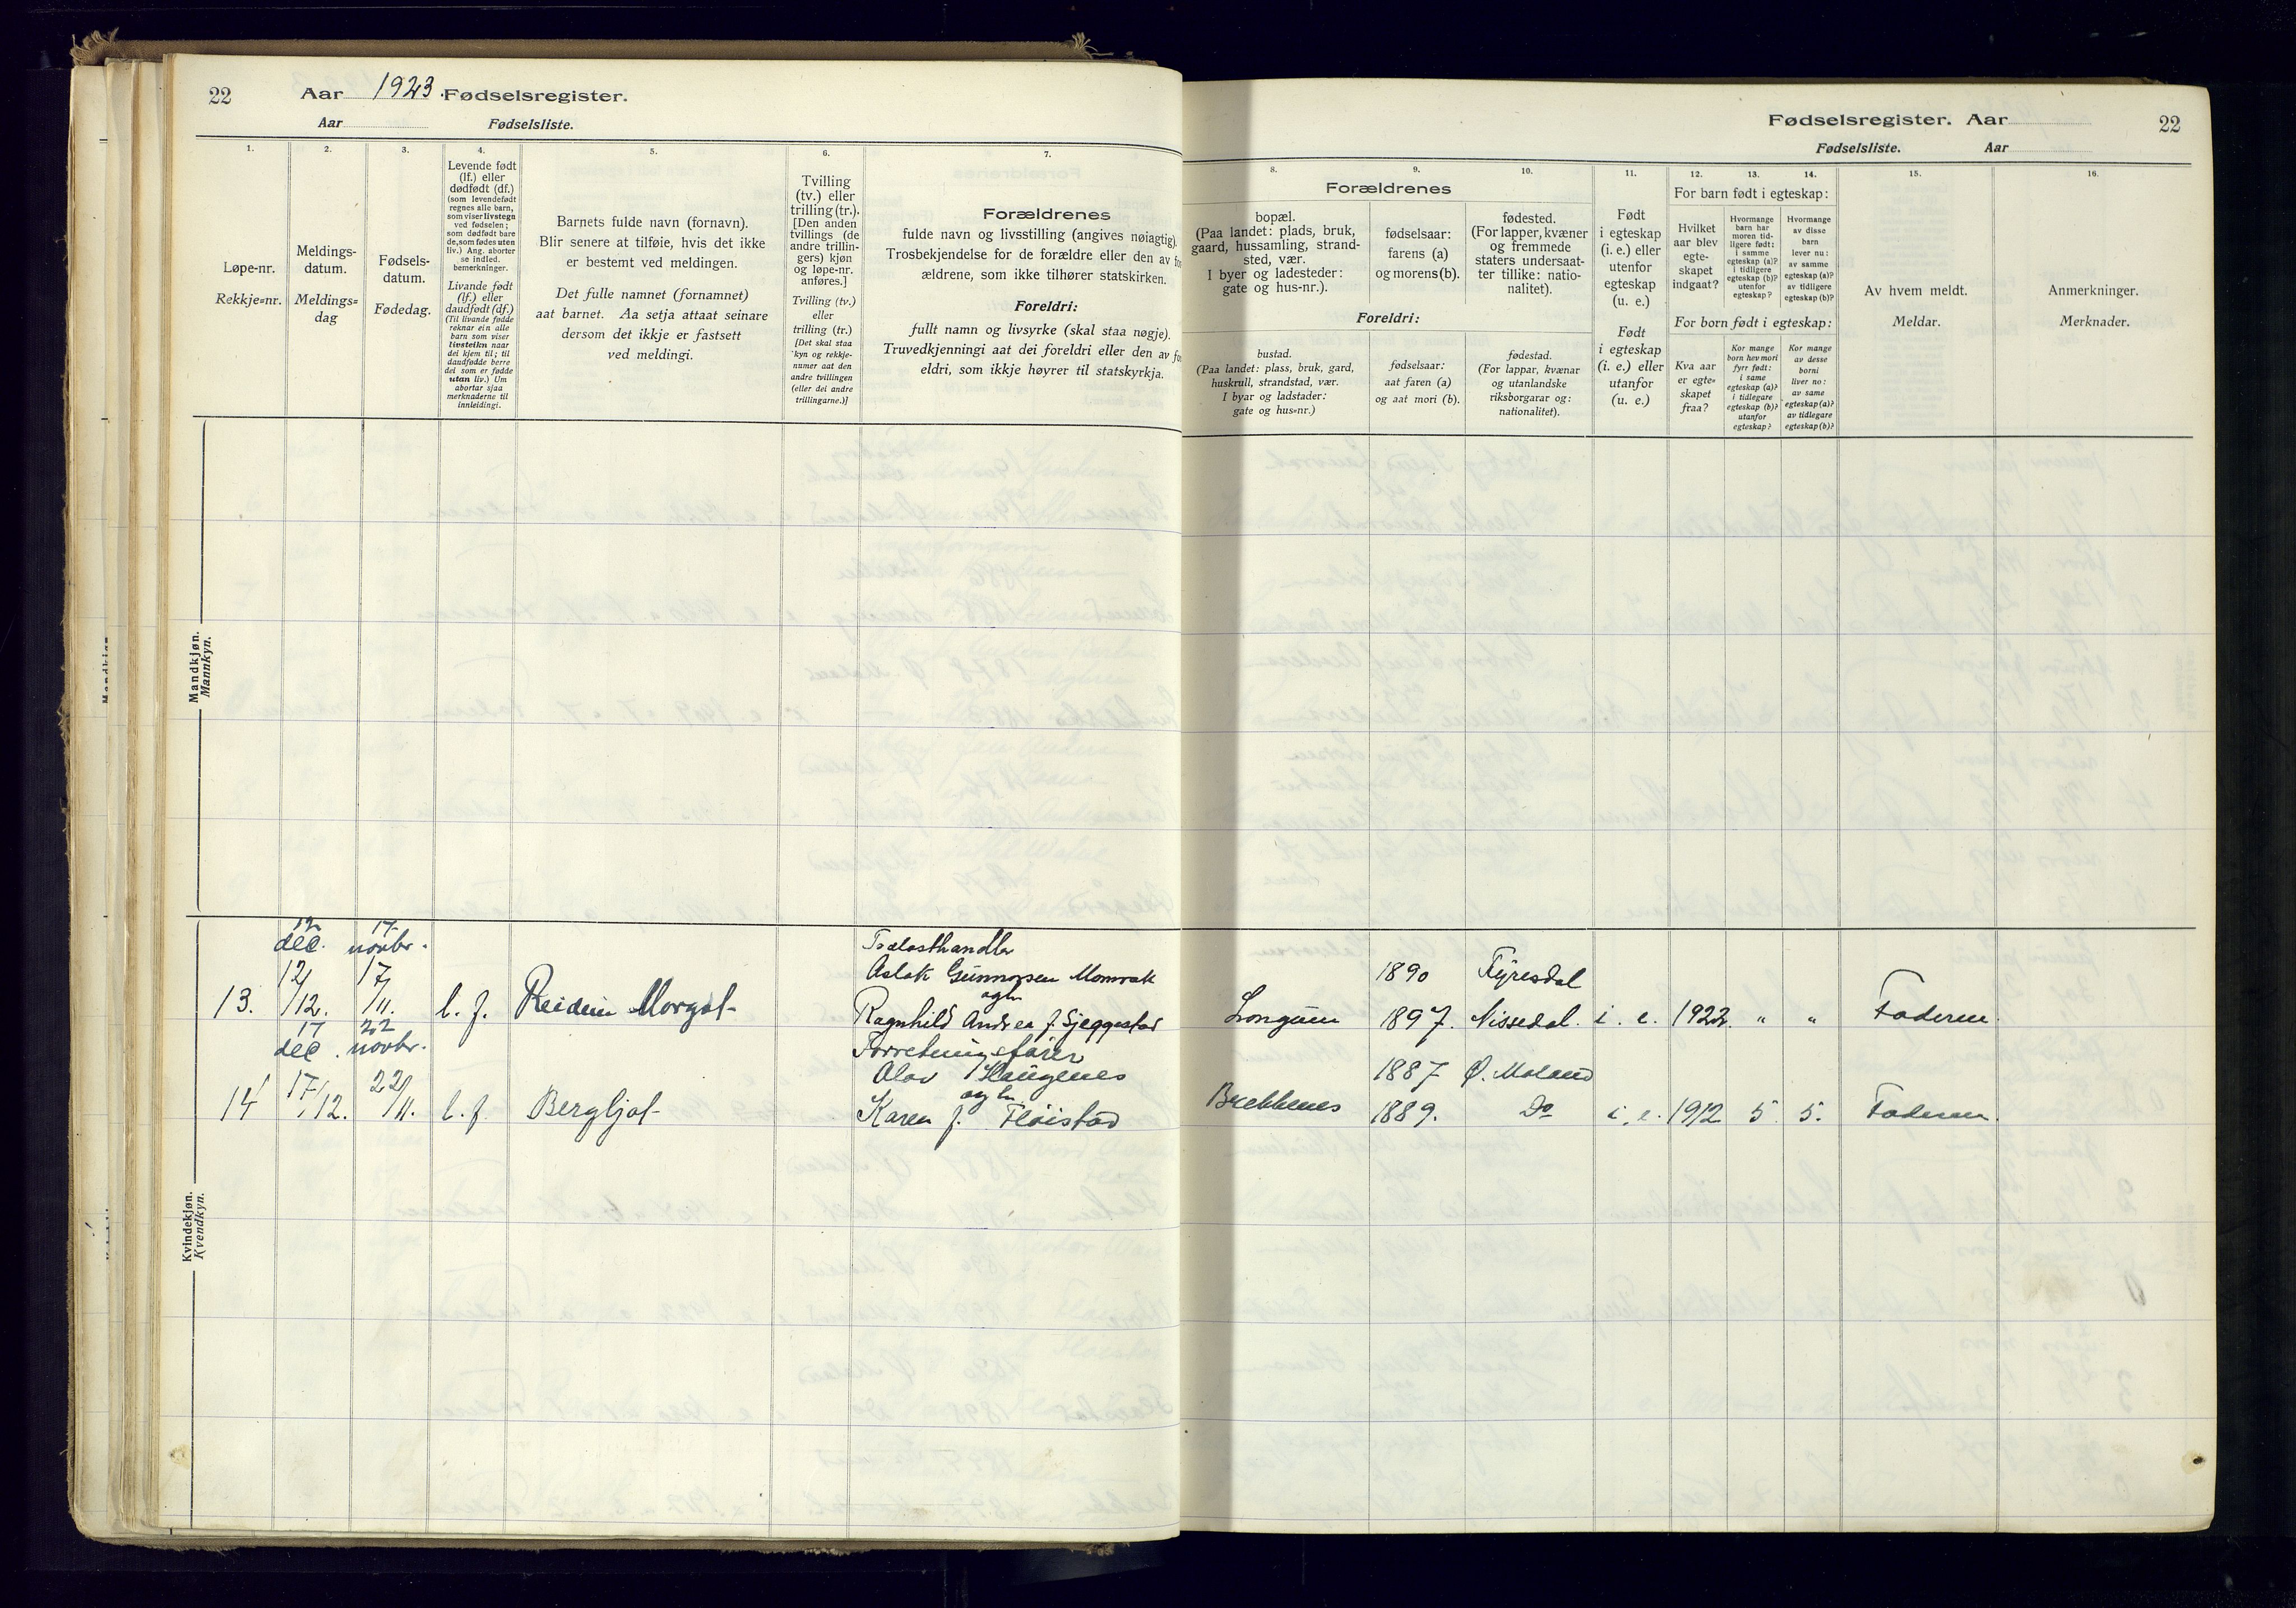 22
Aar 1923. Fødselsregister.
Aar Fødselsliste.
1.
2.
3.
4.
5.
6.
7.
Løpe-nr.
Rekkje=nr.
Meldings-
datum.
Meldings=
dag
Fødsels-
datum.
Fødedag.
Levende født
(lf.) eller
dødfødt (df.)
(som levendefødt
regnes alle barn,
som viser livstegn
ved fødselen;
som dødfødt bare
de, som fødes uten
liv.) Ang. aborter
se indled.
bemerkninger.
Livande født
(lf.) eller
daudfødt (df.)
(Til livande fødde
reknar ein alle
barn som viser
livsteikn naar
dei kjem til; til
daudfødde berre
dei som er fødde
utan liv.) Um
abortar sjaa
merknaderne til
innleidingi.
Barnets fulde navn (fornavn).
Blir senere at tilføie, hvis det ikke
er bestemt ved meldingen.
Det fulle namnet (fornamnet)
aat barnet. Aa setja attaat seinare
dersom det ikkje er fastsett
ved meldingi.
Tvilling
(tv.) eller
trilling (tr.).
[Den anden
tvillings (de
andre trillin-
gers) kjøn
og løpe-nr.
anføres.]
Tvilling (tv.)
eller
trilling (tr.)
[Det skal staa
kyn og rekkje-
numer aat den
andre tvillingen
(eller dei andre
trillingarne.)]
Forældrenes
fulde navn og livsstilling (angives nøiagtig).
Trosbekjendelse for de forældre eller den av for
ældrene, som ikke tilhører statskirken.
Foreldri:
fullt namn og livsyrke (skal staa nøgje).
Truvedkjenningi aat dei foreldri eller den av for
eldri, som ikkje høyrer til statskyrkja.
Mandkjøn.
Mannkyn.
12 17
dec. novbr.
12/12. 17/11.
13. l. f. Reidun Margot
Trælasthandler
Aslak Gunnarsen Momrak
og h
Ragnhild Andrea f.
17 22
dec. novbr.
17/12. 22/11.
14 l. f. Bergljot
Forretningsfører
Olav Haugenes
og h
Karen f. Fløistad
Kvindekjøn.
Kvendkyn.
Fødselsregister. Aar
22
Fødselsliste. Aar
8.
9.
10.
11.
12.
13.
14.
15.
16.
Forældrenes
bopæl.
(Paa landet: plads, bruk,
gaard, hussamling, strand-
sted, vær.
I byer og ladesteder:
gate og hus-nr.).
fødselsaar:
farens (a)
og morens (b).
fødested.
(For lapper, kvæner
og fremmede
staters undersaat-
ter tillike: natio-
nalitet).
Foreldri:
bustad.
(Paa landet: plass, bruk, gard,
huskrull, strandstad, vær.
I byar og ladstader:
gate og hus=nr.)
fødselsaar:
aat faren (a)
og aat mori (b).
fødestad.
(For lappar, kvænar
og utanlandske
riksborgarar og:
nationalitet).
Født
i egteskap
(i. e.) eller
utenfor
egteskap
(u. e.)
Født
i egteskap
(i. e.) eller
utanfor
(u. e.)
For barn født i egteskap:
Hvilket
aar blev
egte-
skapet
indgaat?
Hvormange
barn har
moren tid-
ligere født:
i samme
egteskap (a)?
i tidligere
egteskap (b)?
utenfor
egteskap?
Hvormange
av disse
barn
lever nu:
av samme
egteskap (a)?
av tidligere
egteskap (b)?
For born født i egteskap:
Kva aar
er egte=
skapet
fraa?
Kor mange
born hev mori
fyrr født:
i same
egteskap (a)?
i tidlegare
egteskap (b)?
utanfor
egteskap?
Kor mange
av desse
borni
liver no:
av same
egteskap (a)?
av tidlegare
egteskap (b)?
Av hvem meldt.
Meldar.
Anmerkninger.
Merknader.
1890 Fyresdal
Longum 1897. Nissedal. i. e. 1922. " " Faderen.
1887 Ø. Moland
Brekkenes 1889. Do i. e. 1912 5 5. Faderen.